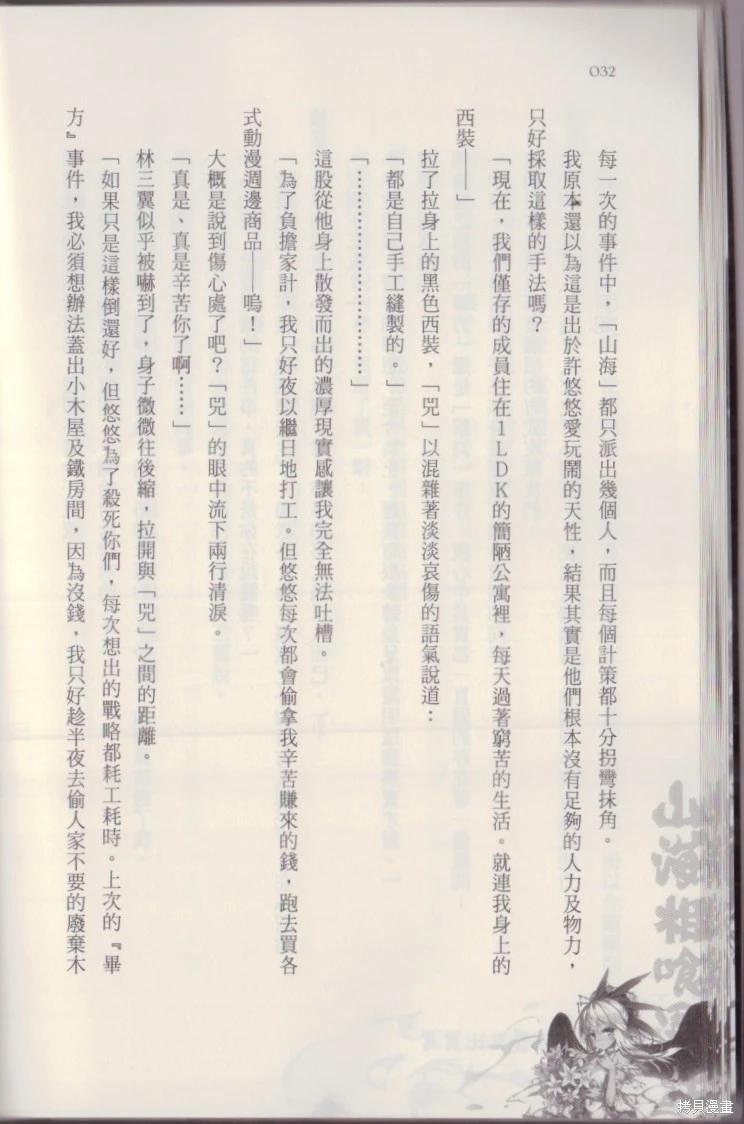 032
每一次的事件中，「山海」都只派出幾個人，而且每個計策都十分拐彎抹角。
我原本還以為這是出於許悠悠愛玩鬧的天性，結果其實是他們根本沒有足夠的人力及物力，
只好採取這樣的手法嗎？
「現在，我們僅存的成員住在1LDK的簡陋公寓裡，每天過著窮苦的生活。就連我身上的
西裝——」
拉了拉身上的黑色西裝，「兕」以混雜著淡淡哀傷的語氣說道：
「都是自己手工縫製的。」
「…………………………」
這股從他身上散發而出的濃厚現實感讓我完全無法吐槽。
「為了負擔家計，我只好夜以繼日地打工。但悠悠每次都會偷拿我辛苦賺來的錢，跑去買各
式動漫週邊商品——嗚！」
大概是說到傷心處了吧？「兕」的眼中流下兩行清淚。
「真是、真是辛苦你了啊……」
林三翼似乎被嚇到了，身子微微往後縮，拉開與「兕」之間的距離。
「如果只是這樣倒還好，但悠悠為了殺死你們，每次想出的戰略都耗工耗時。上次的『畢
方』事件，我必須想辦法蓋出小木屋及鐵房間，因為沒錢，我只好趁半夜去偷人家不要的廢棄木
山海相喰
拷貝漫畫